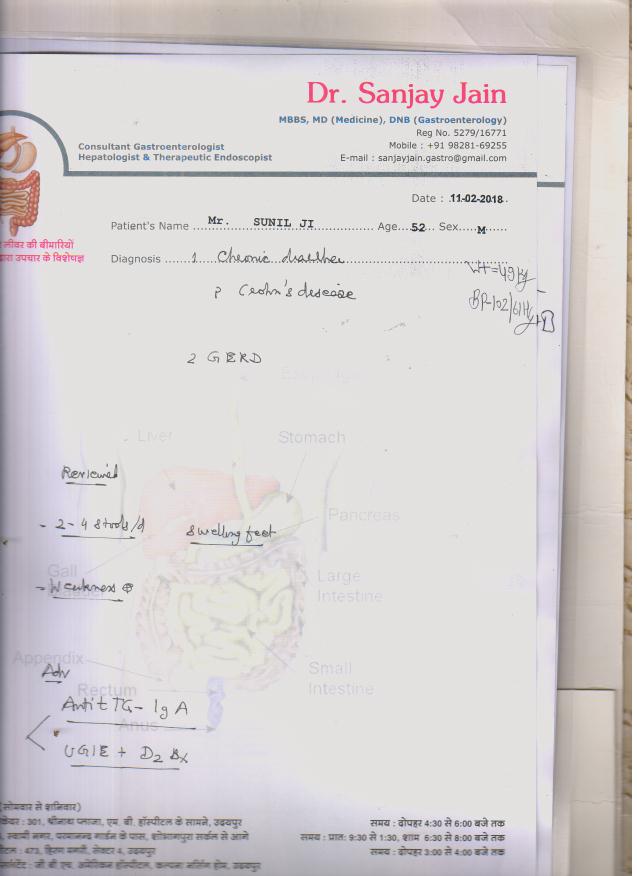 Dr. Sanjay Jain
MBBS, MD (Medicine), DNB (Gastroenterology)
Reg No. 5279/16771
Consultant Gastroenterologist
Mobile : +91 98281-69255
Hepatologist & Therapeutic Endoscopist
E-mail : sanjayjain.gastro@gmail.com
Date : 11-02-2018
Patient's Name Mr. SUNIL JI Age 52 Sex M
लीवर की बीमारियों
उपचार के विशेषज्ञ
Diagnosis 1 Chronic diarrhea
Wt = 49 kg
? Crohn's disease
BP-102/61
2 GERD
Liver
Stomach
Reviewed
Pancreas
- 2-4 stools/d swelling feet
Gall
Large
Intestine
- Weakness ⊕
Appendix
Small
Intestine
Adv
Rectum
Anti tTG - IgA
Anus
UGIE + D2 Bx
(सोमवार से शनिवार)
301, श्रीनाथ प्लाजा, एम. बी. हॉस्पीटल के सामने, उदयपुर
समय : दोपहर 4:30 से 6:00 बजे तक
स्वामी नगर, परमानन्द गार्डन के पास, शोभागपुरा सर्कल से आगे
समय : प्रातः 9:30 से 1:30, शाम 6:30 से 8:00 बजे तक
473, हिरण मगरी, सेक्टर 4, उदयपुर
समय : दोपहर 3:00 से 4:00 बजे तक
जी बी एच. अमेरिकन हॉस्पीटल, कल्पना नर्सिंग होम, उदयपुर